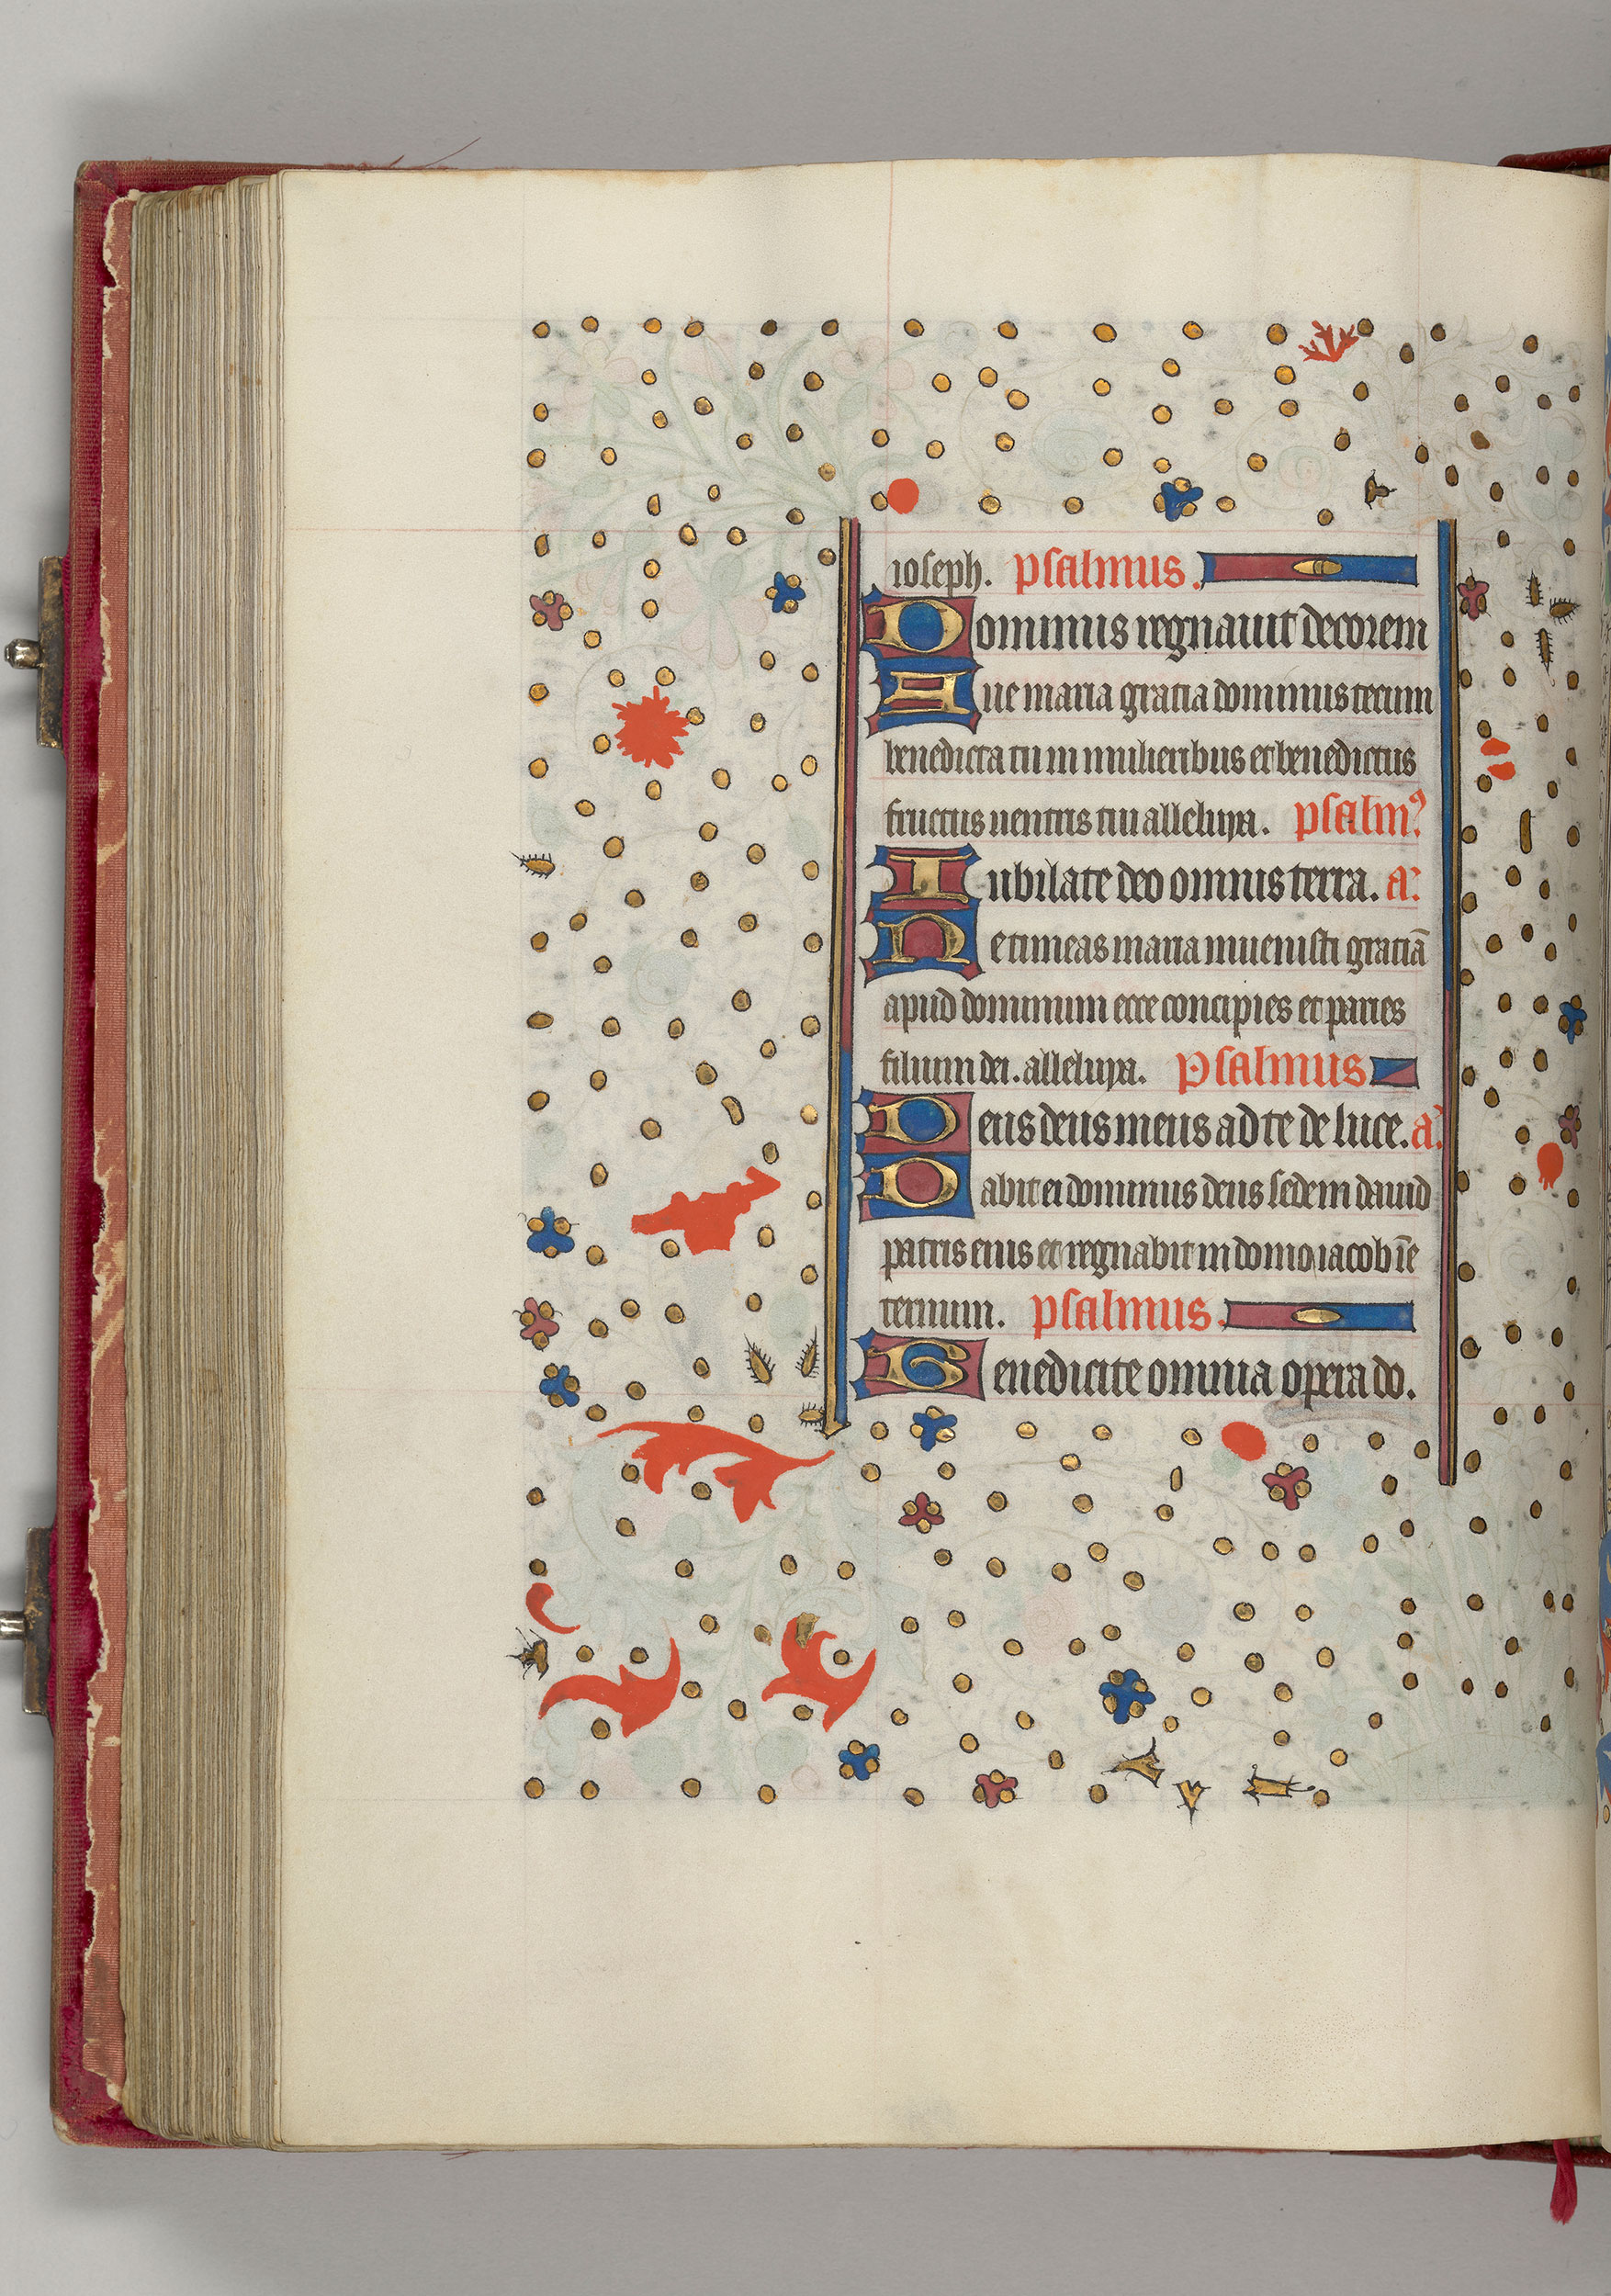 ioseph. psalmus.
Dominus regnauit decorem
Aue maria gratia dominus tecum
benedicta tu in mulieribus et benedictus
fructus uentris tui alleluya. psalmꝰ.
Iubilate deo omnis terra. a᷒
Ne timeas maria inuenisti gratiā
apud dominum ecce concipies et paries
filium dei. alleluya. Psalmus
Deus deus meus ad te de luce. a᷒
Dabit ei dominus deus sedem dauid
patris eius et regnabit in domo iacob ī e
ternum. psalmus.
Benedicite omnia opera do.